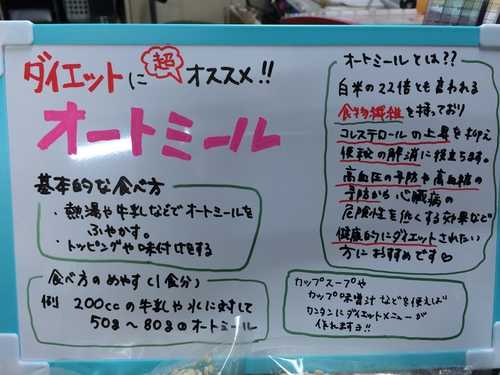 ダイエットに超オススメ!!
オートミール
基本的な食べ方
・熱湯や牛乳などでオートミールを
ふやかす。
・トッピングや味付けをする
食べ方のめやす(1食分)
例 200ccの牛乳や水に対して
50g〜80gのオートミール
オートミールとは??
白米の22倍とも言われる
食物繊維を持っており
コレステロールの上昇を抑え
便秘の解消に役立ちます。
高血圧の予防や高血糖の
予防から心臓病の
危険性を低くする効果など
健康的にダイエットされたい
方におすすめです♡
カップスープや
カップ味噌汁などを使えば
カンタンにダイエットメニューが
作れますヨ!!